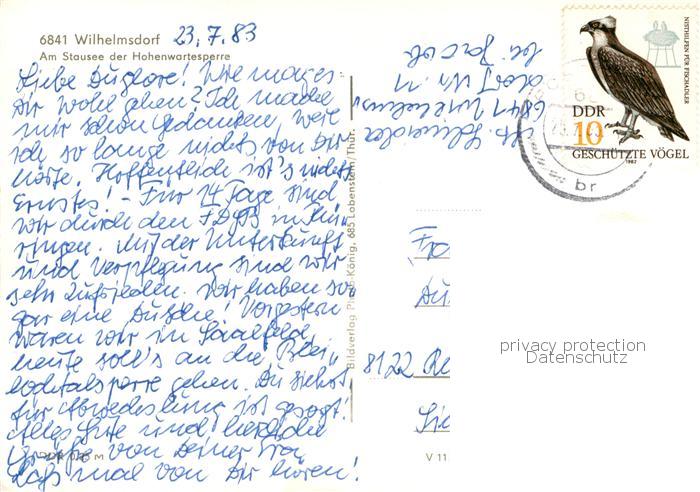 6841 Wilhelmsdorf 23.7.83
Am Stausee der Hohenwartesperre
Liebe Duglore! Wie mag es
Dir wohl gehen? Ich mache
mir schon Gedanken, weil
ich so lange nichts von Dir
hörte. Hoffentlich ist's nichts
Ernstes! – Für 14 Tage sind
wir durch den FDGB in Thü-
ringen. Mit der Unterkunft
und Verpflegung sind wir
sehr zufrieden. Wir haben so-
gar eine Dusche! Vorgestern
waren wir in Saalfeld,
heute soll's an die Blei-
lochtalsperre gehen. Du siehst,
für Abwechslung ist gesorgt!
Alles Gute und herzliche
Grüße von Deiner
Lass mal von Dir hören!
Bildverlag König, 685 Lobenstein/Thür.
6841 Wilhelms-
dorf Nr. 11
bei Jacob
DDR
10
GESCHÜTZTE VÖGEL
1982
NISTHILFEN FÜR FISCHADLER
br
8122
V 11
privacy protection
Datenschutz